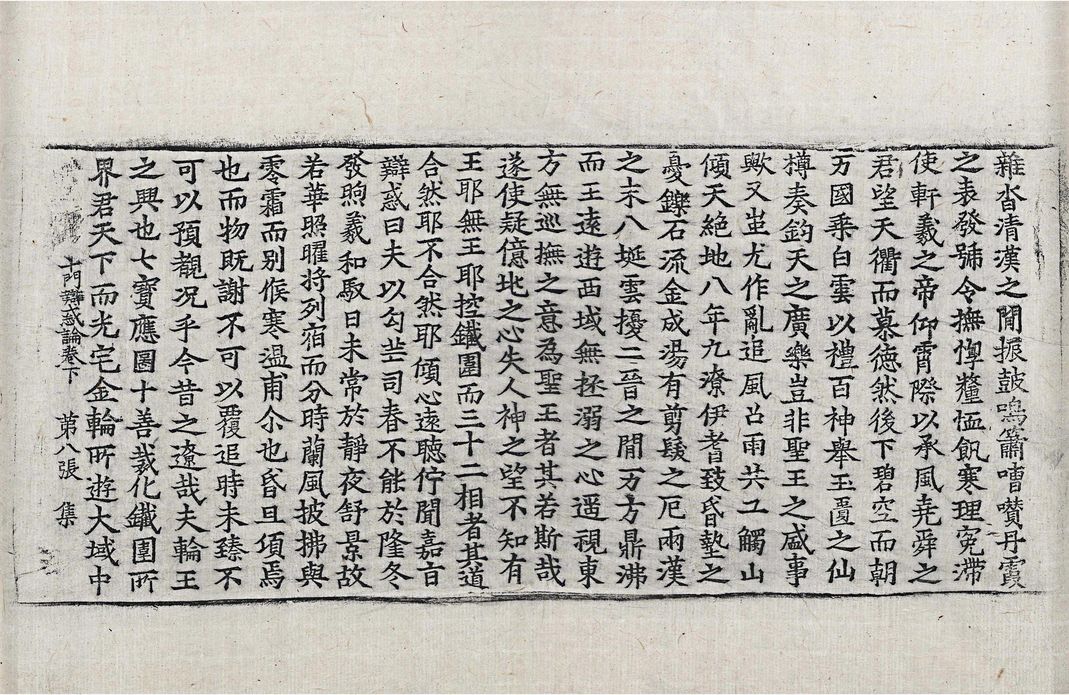 雜沓清漢之間振鼓鳴簫嘈囋丹霞
之表發號令撫惸釐恤飢寒理寃滯
使軒羲之帝仰霄際以承風尭舜之
君望天衢而慕德然後下碧空而朝
万國乗白雲以禮百神舉玉罍之仙
樽奏鈞天之廣樂豈非聖王之盛事
歟又蚩尤作亂追風召雨共工觸山
傾天絶地八年九潦伊耆致昏墊之
憂鑠石流金成湯有剪髮之厄兩漢
之末八埏雲擾二晉之間万方鼎沸
而王遠遊西域無拯溺之心遥視東
方無巡撫之意為聖王者其若斯哉
遂使疑億兆之心失人神之望不知有
王耶無王耶控鐵圍而三十二相者其道
合然耶不合然耶傾心遠聽佇聞嘉旨
辯惑曰夫以勾芒司春不能於隆冬
發煦羲和馭日未常於靜夜舒景故
若華照曜将列宿而分時蘭風披拂與
零霜而别㑋寒温甫尒也昏旦湏焉
也而物既謝不可以覆追時未臻不
可以預覩况乎今昔之遼哉夫輪王
之興也七寶應圖十善裁化鐵圍所
界君天下而光宅金輪所遊大域中
十門辯惑論卷下　第八張　集